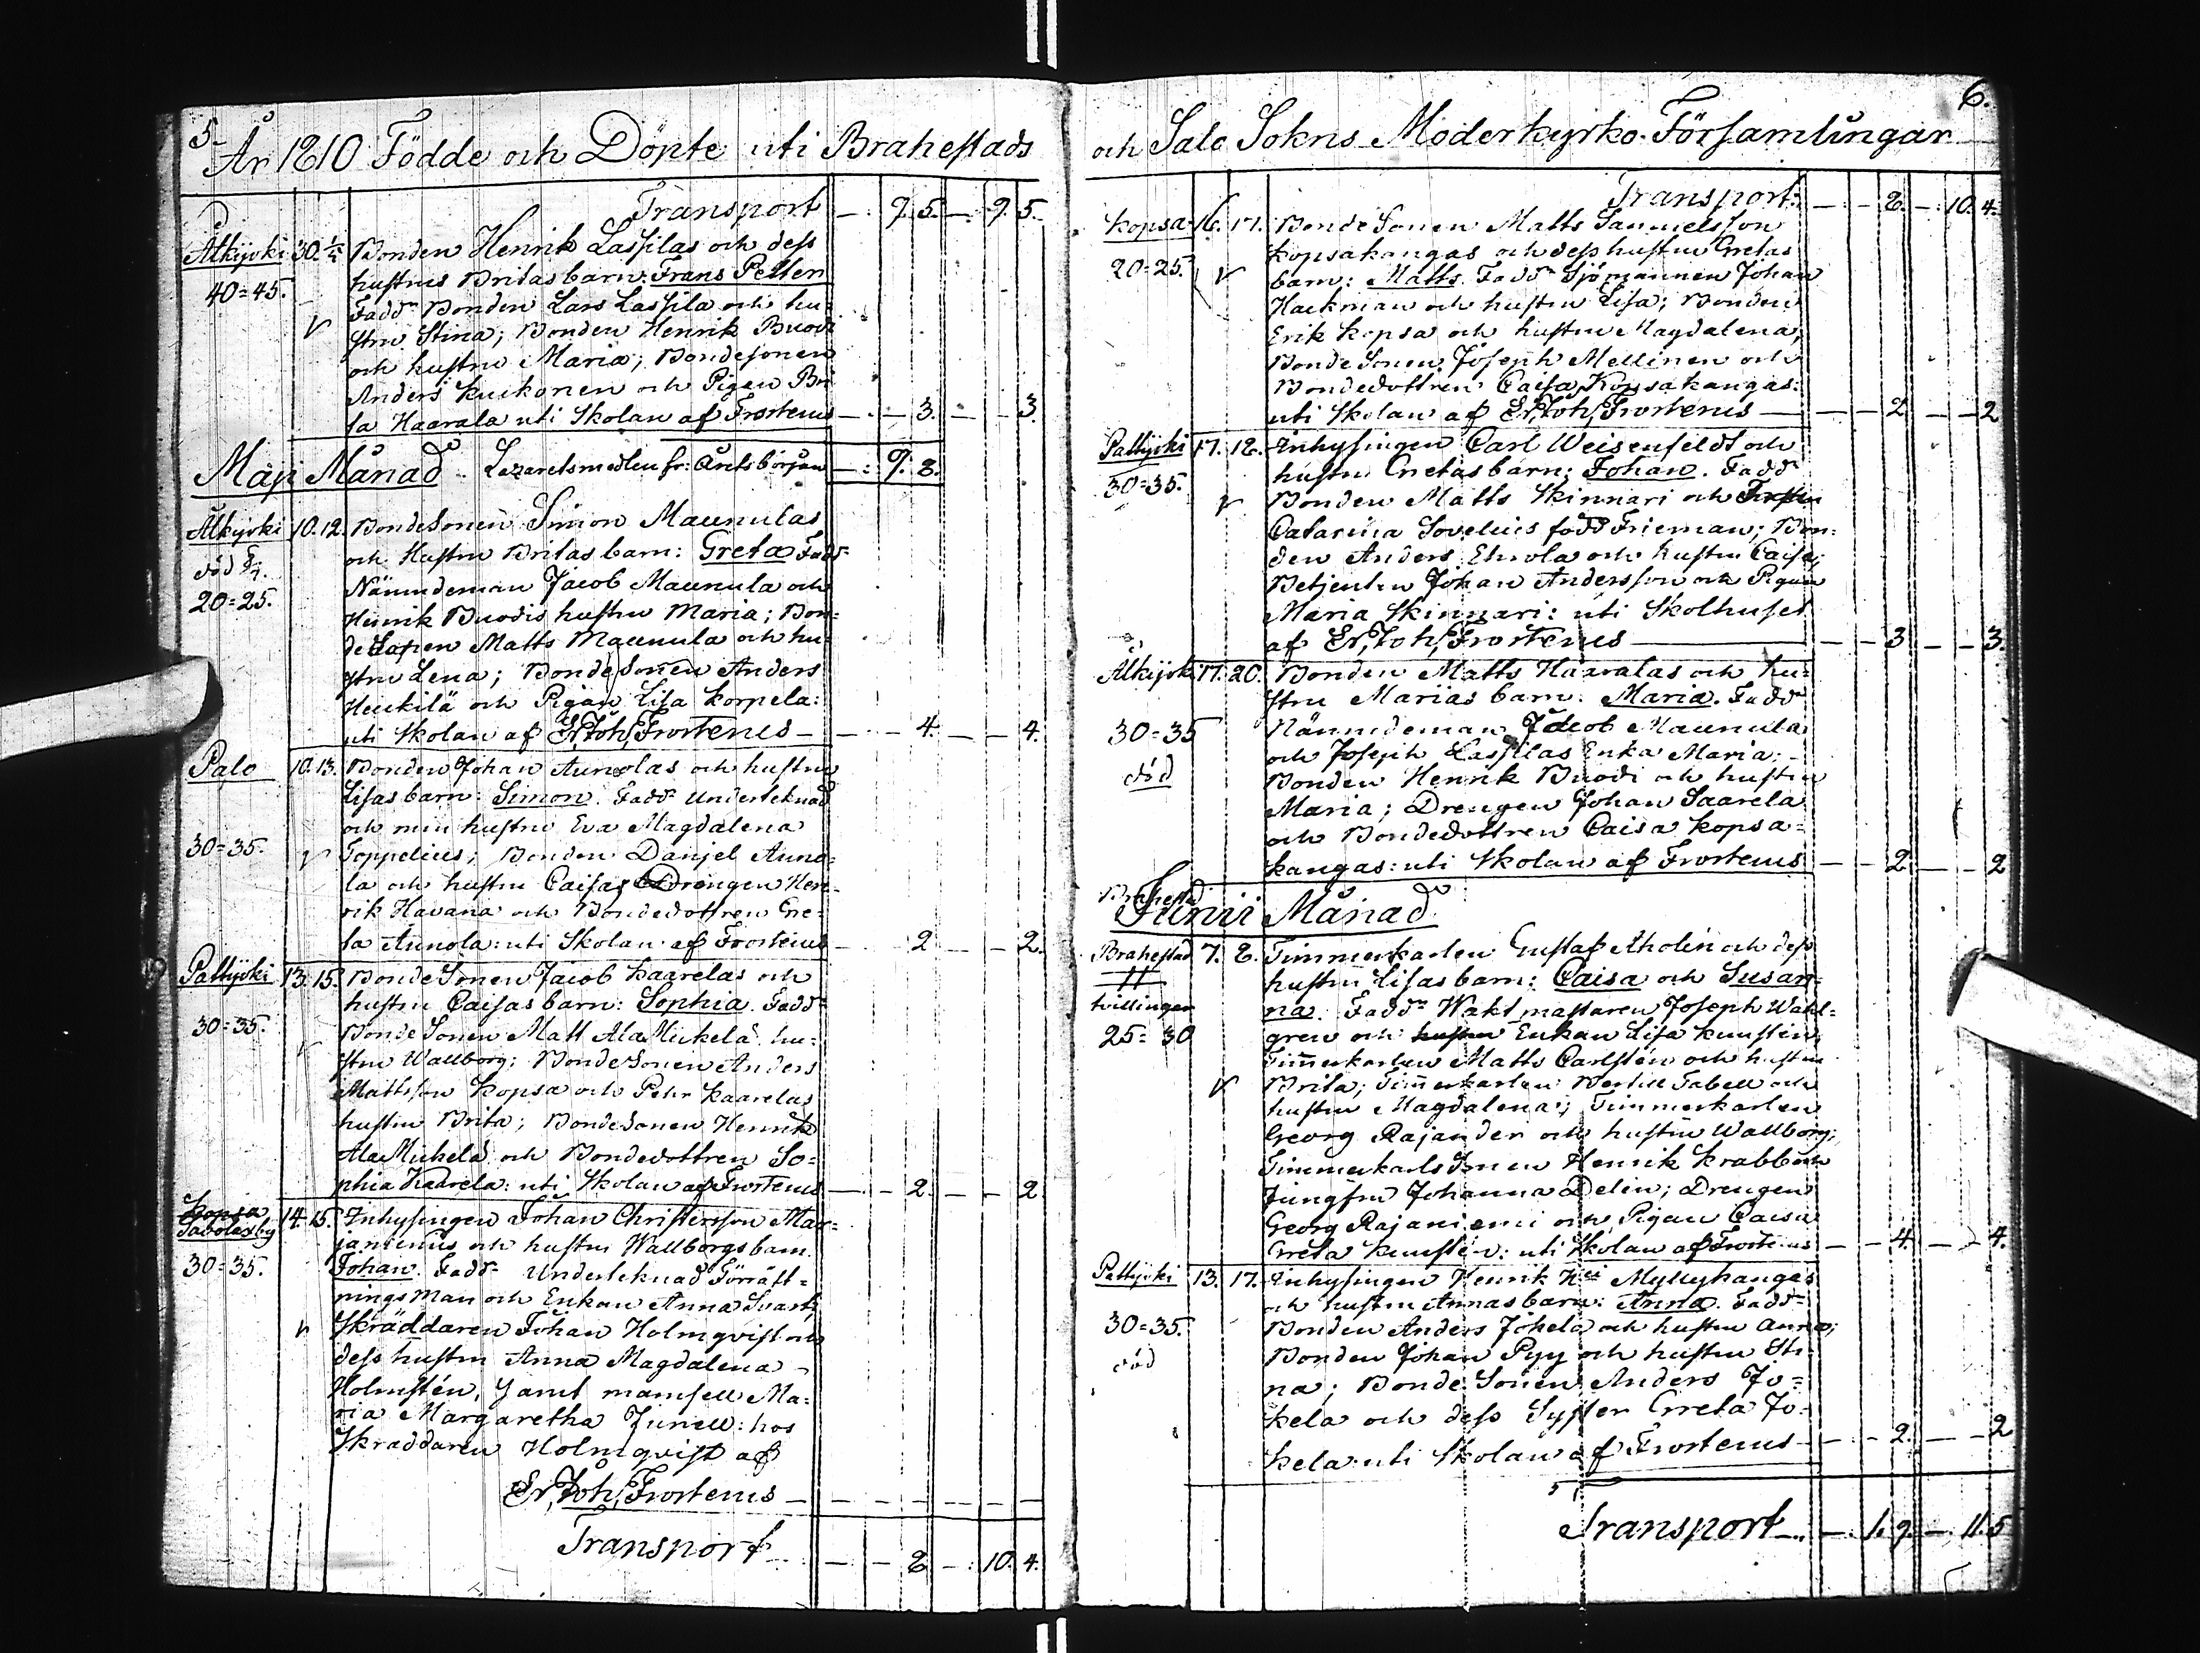 5.
År 1810 Födde och Döpte uti Brahestads
Transport — 9. 5. — 9. 5.
Älkijoki 30. 1/5 Bonden Henrik Lassilas och dess
40=45. hustrus Britas barn: Frans Petter
Fadd: Bonden Lars Lassila och hu=
stru Stina; Bonden Henrik Buodi
och hustru Maria; Bondesonen
Anders Kuikonen och Pigan Bri
ta Haarala uti Skolan af Frosterus — 3. — 3.
Maji Månad Lazaretsmedlen fr: Årets början — 9. 8.
Älkijoki 10. 12. BondeSonen Simon Maunulas
död och Hustru Britas barn: Greta Fadd:
20=25. Nämndeman Jacob Maunula och
Henrik Buodis hustru Maria; Bon=
de Matts Maunula och hu=
stru Lena; BondeSonen Anders
Heikilä och Pigan Lisa Korpela:
uti Skolan af Er. Joh. Frosterus — 4. — 4.
Palo 10. 13. Bonden Johan Annolas och hustru
Lisas barn: Simon. Fadd: Underteknad
och min hustru Eva Magdalena
30=35. Toppelius; Bonden Danjel Anno=
la och hustru Caisa; Drengen Hen=
rik Havana och Bondedottren Gre=
ta Annola: uti Skolan af Frosterus — 2 — 2.
Pattijoki 13. 15. BondeSonen Jacob Kaarelas och
hustru Caisas barn: Sophia. Fadd:
30=35. BondeSonen Matt AlaMickelä hu=
stru Wallborg; BondeSonen Anders
Mattsson Kopsa och Pehr Kaarelas
hustru Brita; BondeSonen Henrik
AlaMickelä och Bondedottren So=
phia Kaarela: uti Skolan af Frosterus — 2. — 2
Kopsa 14. 15. Inhysingen Johan Christersson Mar=
Savolaxby janienius och hustru Wallborgs barn
30=35. Johan. Fadd: Underteknad Förrätt=
nings Man och Enkan Anna Svartz
Skräddaren Johan Holmqvist och
dess hustru Anna Magdalena
Holmstén, samt mamsell Ma=
ria Margaretha Junell: hos
Skräddaren Holmqvist af
Er. Joh. Frosterus —
Transport — 8 — 10. 4.
6.
och Salo Sokns Moderkyrko Församlingar
Transport: — 8. — 10. 4.
Kopsa 16. 17. BondeSonen Matts Samuelsson
Kopsakangas och dess hustru Gretas
20=25. barn: Matts. Fadd: Sjömannen Johan
Hackman och hustru Lisa; Bonden
Erik Kopsa och hustru Magdalena,
BondeSonen Joseph Mellinen och
Bondedottren Caisa Kopsakangas:
uti Skolan af Er. Joh. Frosterus — 2. — 2.
Pattijoki 17. 18. Inhysingen Carl Weisenfeldt och
hustru Gretas barn: Johan. Fadd:
30=35. Bonden Matts Skinnari och
Catarina Sovelius född Frieman; Bon=
den Anders Elmola och hustru Caisa;
Betjenten Johan Andersson och Pigan
Maria Skinnari: uti Skolhuset
af Er. Joh. Frosterus — 3 — 3.
Älkijoki 17. 20. Bonden Matts Haaralas och hu=
stru Marias barn: Maria. Fadd:
30=35 Nämndeman Jacob Maunula
och Joseph Lassilas Enka Maria;
död Bonden Henrik Buodi och hustru
Maria; Drengen Johan Saarela
och Bondedottren Caisa Kopsa=
kangas: uti Skolan af Frosterus — 2. — 2
Brahestad
Junii Månad
Brahestad 7. 8. Timmerkarlen Gustaf Aholin och dess
hustru Lisas barn: Caisa och Susan=
tvillingar na. Fadd: Waktmästaren Joseph Wahl=
25=30 gren och hustru Enkan Lisa Kunstén,
Timmerkarlen Matts Carlstén och hustru
Brita; Timmerkarlen Bertill Tabell och
hustru Magdalena; Timmerkarlen
Georg Rajander och hustru Wallborg;
TimmerkarlsSonen Henrik Krabb och
Jungfru Johanna Delin; Drengen
Georg Rajaniemi och Pigan Caisa
Greta Kunstén: uti Skolan af Frosterus — 4. — 4.
Pattijoki 13. 17. Inhysingen Henrik Myllykangas
och hustru Annas barn: Anna. Fadd:
30=35. Bonden Anders Jokela och hustru Anna;
död Bonden Johan Pyy och hustru Sti
na; BondeSonen Anders Jo=
kela och dess Syster Greta Jo=
kela uti Skolan af Frosterus — 2. — 2
Transport — 1. 9. — 11. 5